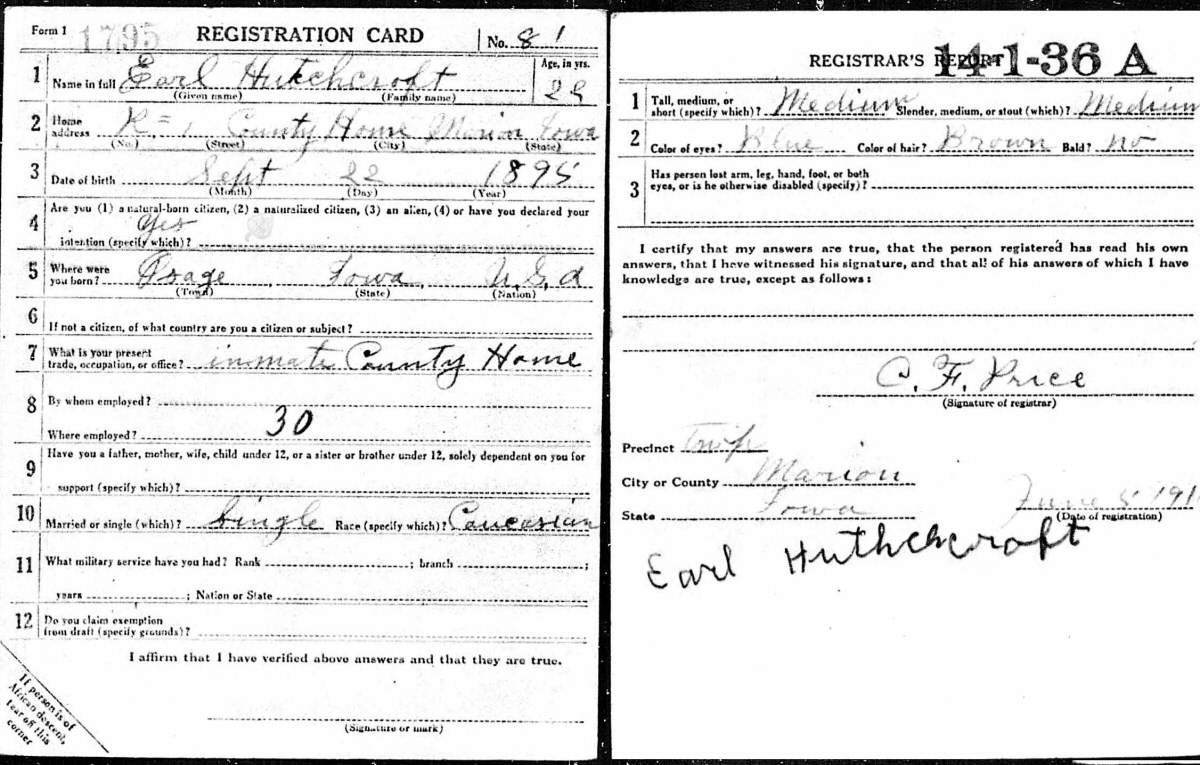 Form 1 1795 REGISTRATION CARD No. 81
1 Name in full Earl Hutchcroft Age, in yrs.
(Given name) (Family name) 22
2 Home address R=1 County Home Marion Iowa
(No.) (Street) (City) (State)
3 Date of birth Sept 22 1895
(Month) (Day) (Year)
4 Are you (1) a natural-born citizen, (2) a naturalized citizen, (3) an alien, (4) or have you declared your
intention (specify which)? Yes
5 Where were you born? Osage, Iowa, U.S.A
(Town) (State) (Nation)
6 If not a citizen, of what country are you a citizen or subject?
7 What is your present trade, occupation, or office? inmate County Home
8 By whom employed?
Where employed? 30
9 Have you a father, mother, wife, child under 12, or a sister or brother under 12, solely dependent on you for
support (specify which)?
10 Married or single (which)? Single Race (specify which)? Caucasian
11 What military service have you had? Rank ; branch ;
years ; Nation or State
12 Do you claim exemption
from draft (specify grounds)?
I affirm that I have verified above answers and that they are true.
(Signature or mark)
If person is of
African descent,
tear off this
corner
REGISTRAR'S REPORT 14-1-36 A
1 Tall, medium, or
short (specify which)? Medium Slender, medium, or stout (which)? Medium
2 Color of eyes? Blue Color of hair? Brown Bald? no
3 Has person lost arm, leg, hand, foot, or both
eyes, or is he otherwise disabled (specify)?
I certify that my answers are true, that the person registered has read his own
answers, that I have witnessed his signature, and that all of his answers of which I have
knowledge are true, except as follows:
C. F. Price
(Signature of registrar)
Precinct Twp
City or County Marion
State Iowa June 5, 191
(Date of registration)
Earl Huthchcroft